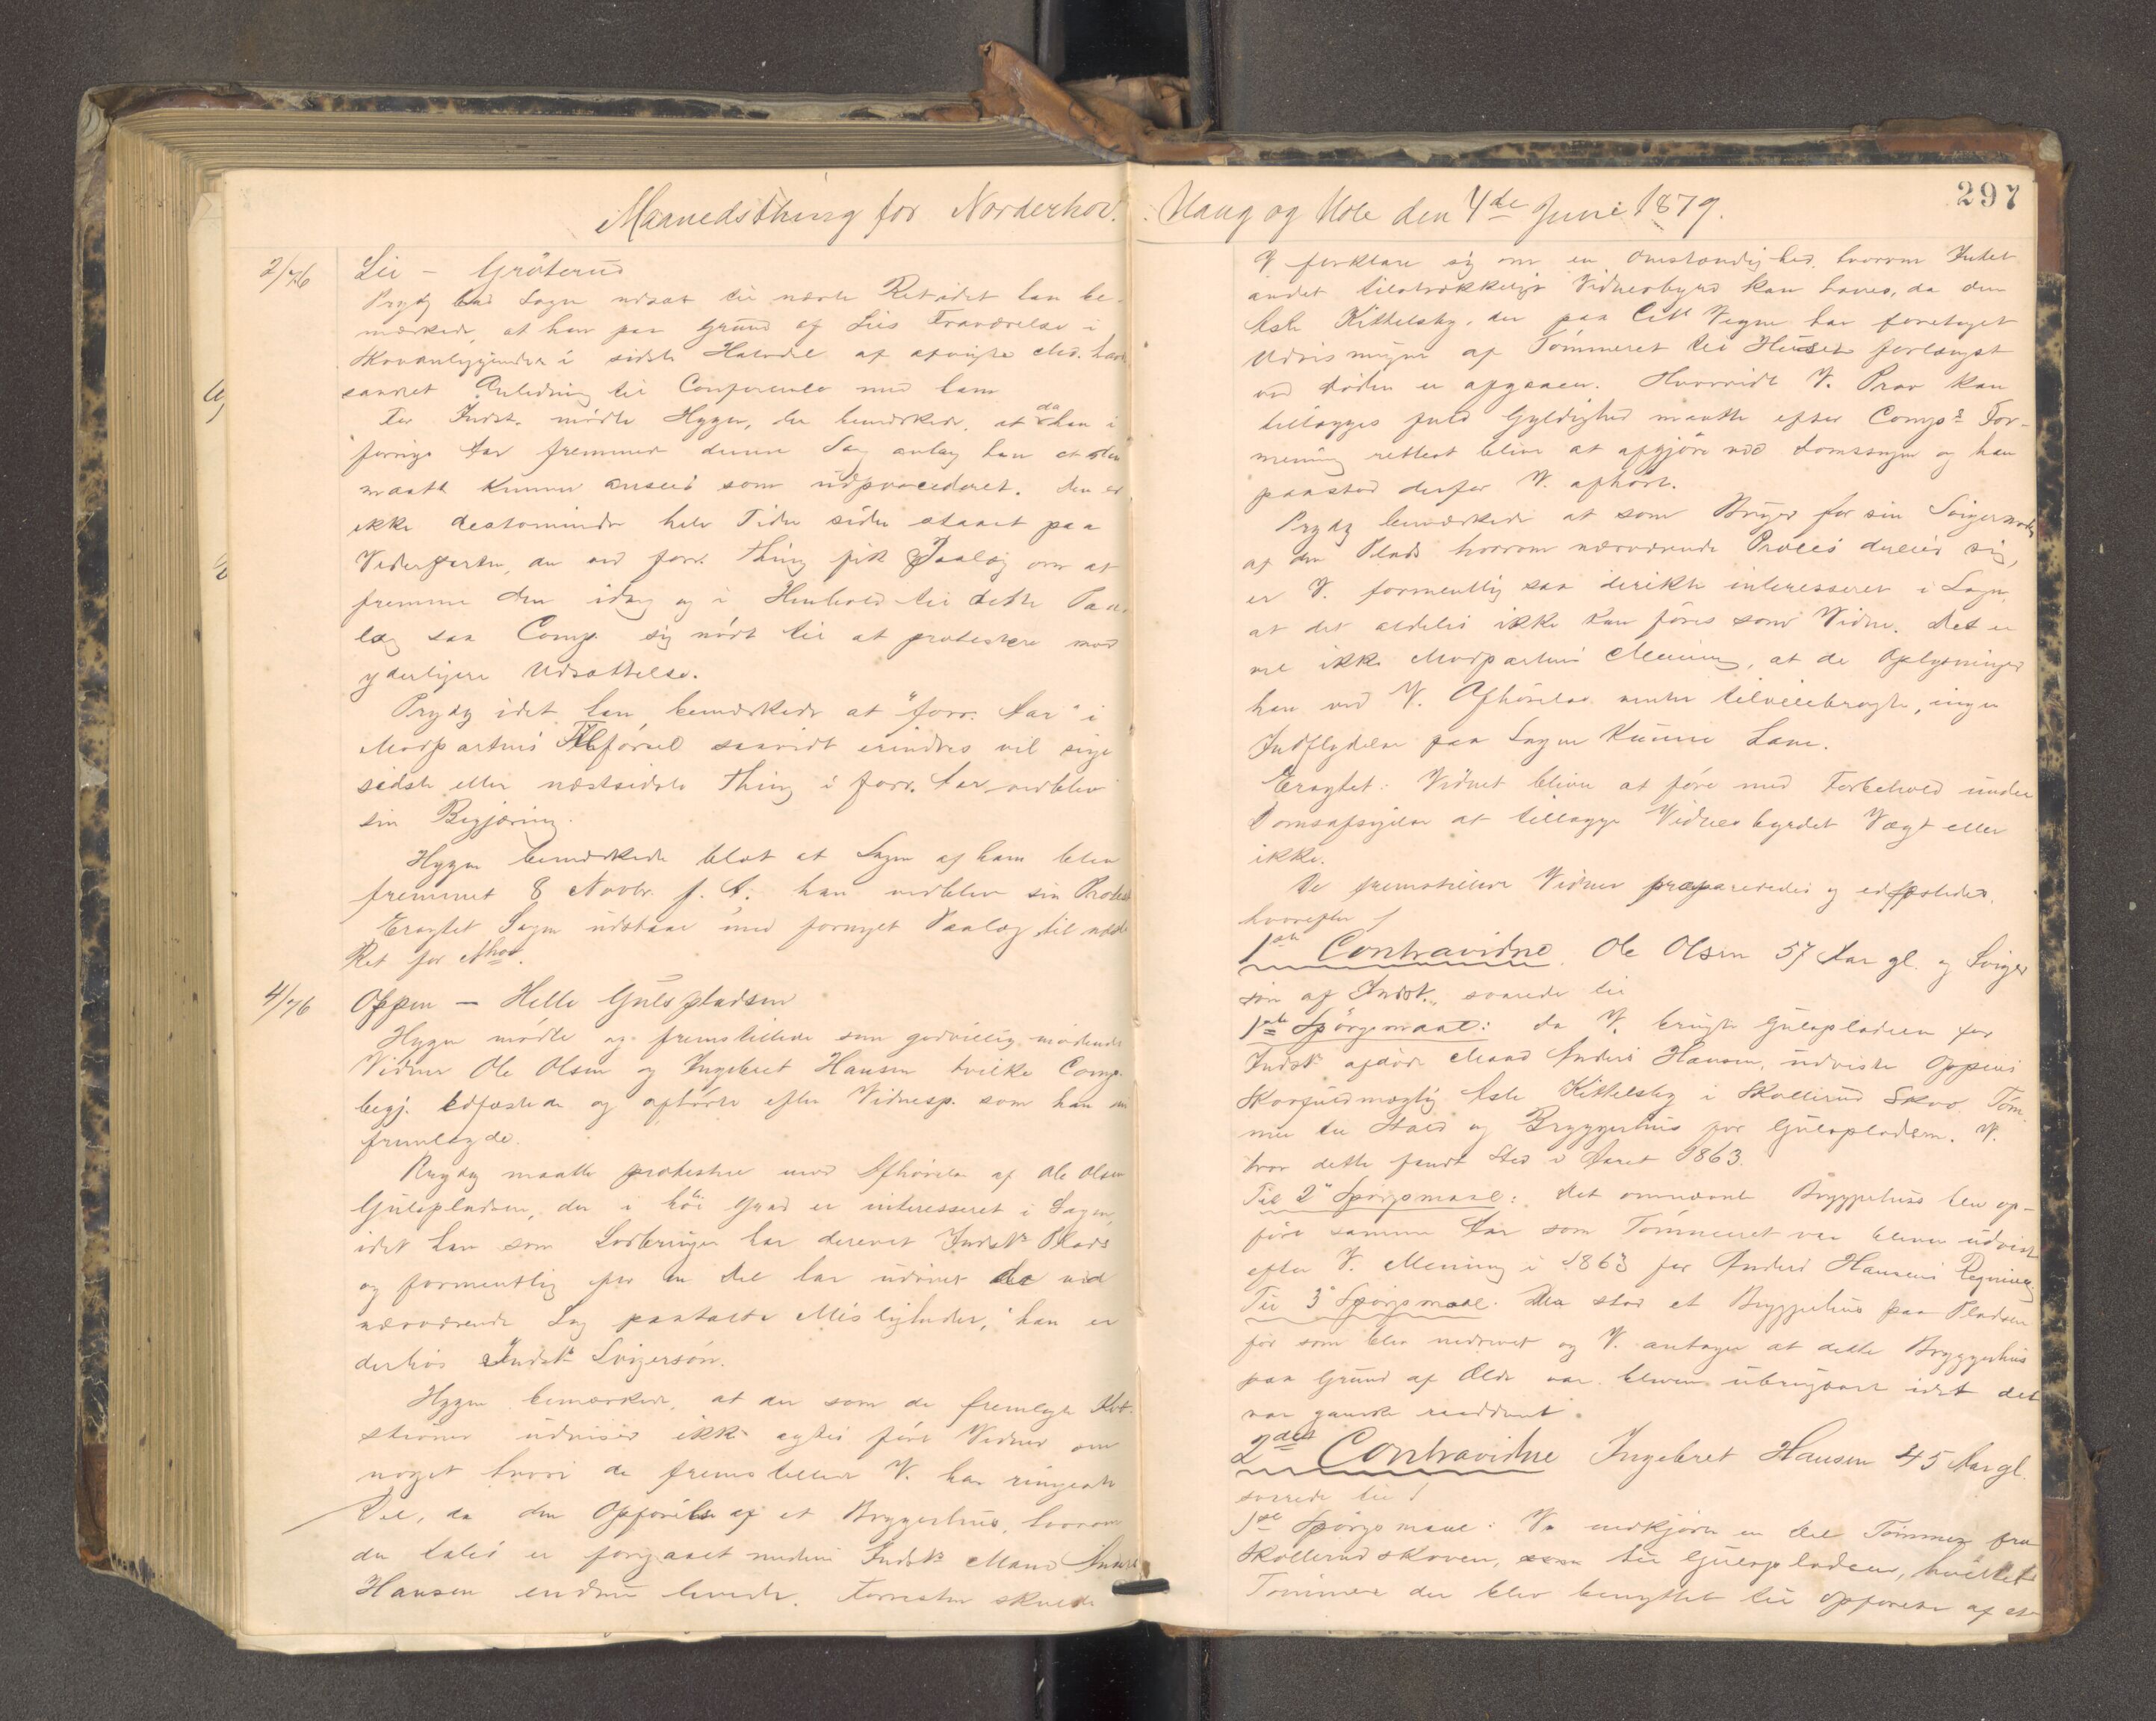 Maanedsthing for Norderhov.
2/76 Lie – Gröterud
Prydz bad Sagen udsat til næste Ret idet han be-
mærkede, at han paa Grund af Lies Fraværelse i
Skovanliggender i sidste Halvdel af afvigte Md. har
savnet Anledning til Conference med ham
For Indst. mödte Hygen, der bemærkede, at da han i
forrige Aar fremmede denne Sag antog han at den
maatte kunne ansees som udprocederet. Den er
ikke destomindre hele Tiden siden staaet paa
Vederparten, der ved forr. Thing fik Paalæg om at
fremme den idag og i Henhold til dette Paa-
læg saa Comp. sig nödt til at protestere mod
yderligere Udsættelse.
Prydz idet han bemærkede at "forr. Aar" i
Modpartens Tilförsel saavidt erindres vil sige
sidste eller næstsidste Thing i forr. Aar vedblev
sin Begjæring.
Hygen bemærkede blot at Sagen af ham blev
fremmet 8 Novbr. f. A. han vedblev sin Protest
Eragtet Sagen udstaar med fornyet Paalæg til næste
Ret for Nhov.
4/76 Oppen – Helle Gulspladsen
Hygen mödte og fremstillede som godvillig mödende
Vidner Ole Olsen og Ingebret Hansen hvilke Comp.
begj. edfæstede og afhörte efter Vidnesp. som han
fremlagde.
Prydz maatte protestere mod Afhörelse af Ole Olsen
Gulspladsen, der i höi Grad er interesseret i Sagen,
idet han som Lodbruger har drevet Indst.s Plads
og formentlig for en Del har udövet de ved
nærværende Sag paatalte Misligheder, han er
derhos Indst.s Svigersön.
Hygen bemærkede, at der som de fremlagte
udviser ikke agtes fört Vidner om
noget hvori de fremstillede V. har ringeste
Del, da den Opförelse af et Bryggerhus, hvorom
der tales er foregaaet medens Indst.s Mand Anders
Hansen endnu levede. Forresten skulde
297
Haug og Hole den 4de Juni 1879.
V. forklare sig om en Omstændighed, hvorom Intet
andet tilstrækkeligt Vidnesbyrd kan haves, da den
Asle Kittelsby, der paa Cit.s Vegne har foretaget
Udvisningen af Tömmeret til Huset forlængst
ved Döden er afgaaen. Hvorvidt V. Prov kan
tillægges fuld Gyldighed maatte efter Comp.s For-
mening rettest blive at afgjöre ved Domssagen og han
paastod derfor V. afhört.
Prydz bemærkede at som Bruger for sin Svigermoder
af den Plads hvorom nærværende Proces dreier sig,
er V. formentlig saa direkte interesseret i Sagen
at det aldeles ikke kan föres som Vidne. Det er
vel ikke Modpartens Mening, at de Oplysninger
han ved V. Afhörelse venter tilveiebragte, ingen
Indflydelse paa Sagen kunne have.
Eragtet: Vidnet bliver at före med Forbehold under
Domsafsigelse at tillægge Vidnesbyrdet Vægt eller
ikke.
De fremstillede Vidner præpareredes og edfæstedes,
hvorefter
1ste Contravidne. Ole Olsen 57 Aar gl. og Sviger
sön af Indst., svarede til
1ste Spörgsmaal: Da V. brugte Gulspladsen for
Indst. afdöde Mand Anders Hansen, udviste Oppens
Skovfuldmægtig Asle Kittelsby i Skollerud Skov Töm
mer til Stald og Bryggerhus for Gulspladsen. V.
tror dette fandt Sted i Aaret 1863.
Til 2" Spörgsmaal: Det omnævnte Bryggerhus blev op-
fört samme Aar som Tömmeret var bleven udvist
efter V. Mening i 1863 for Anders Hansens Regning
Til 3" Spörgsmaal. Der stod et Bryggerhus paa Pladsen
för som blev nedrevet og V. antager at dette Bryggerhus
paa Grund af Ælde var bleven ubrugbart idet det
var ganske raaddent.
2det Contravidne Ingebret Hansen 45 Aar gl.
svarede til
1ste Spörgsmaal: V. nedkjörte en Del Tömmer fra
Skollerudskoven, til Gulspladsen, hvilket
Tömmer der blev benyttet til Opförelse af et